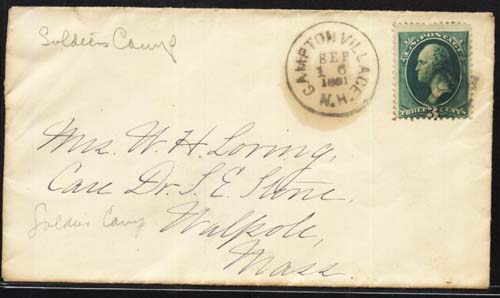 Soldiers Camp
CAMPTON VILLAGE
SEP
16
1881
N.H.
U.S. POSTAGE
THREE CENTS
3
Mrs. W. H. Loring,
Care Dr. S. E. Stone.
Soldier Camp
Walpole,
Mass.